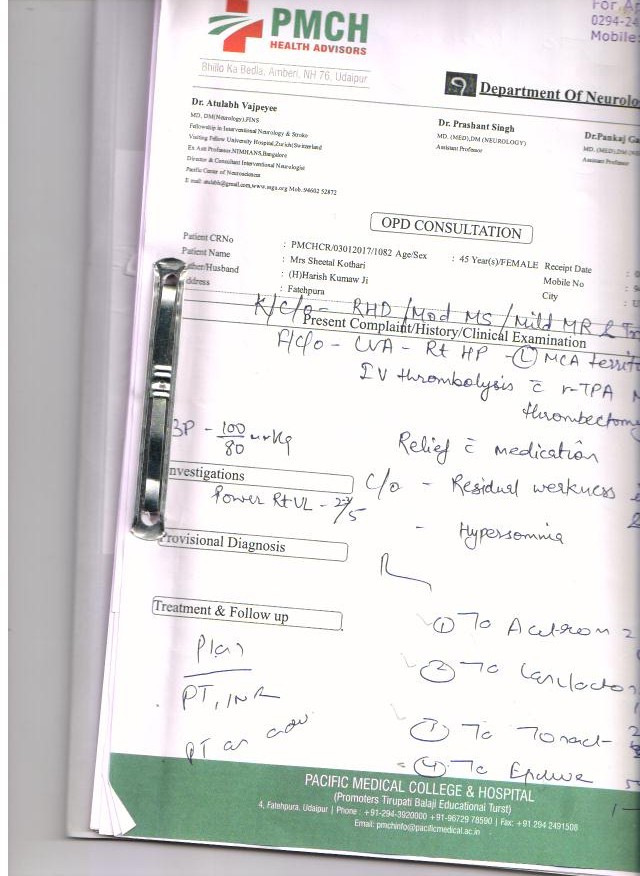 PMCH
HEALTH ADVISORS
Bhillo Ka Bedla, Amberi, NH 76, Udaipur
For Ap
0294-24
Mobile:
Department Of Neurolo
Dr. Atulabh Vajpeyee
MD, DM(Neurology),FINS
Fellowship in Interventional Neurology & Stroke
Visiting Fellow University Hospital,Zurich(Switzerland
Ex. Asst Professor:NIMHANS,Bangalore
Director & Consultant Interventional Neurologist
Pacific Center of Neurosciences
E mail: atulabh@gmail.com,www.ssgs.org Mob.:94602 52872
Dr. Prashant Singh
MD. (MED),DM (NEUROLOGY)
Assistant Professor
Dr.Pankaj Ga
MD. (MED),DM
Assistant Professor
OPD CONSULTATION
Patient CRNo : PMCHCR/03012017/1082 Age/Sex : 45 Year(s)/FEMALE Receipt Date
Patient Name : Mrs Sheetal Kothari Mobile No
ther/Husband : (H)Harish Kumaw Ji City
ddress : Fatehpura
K/C/o - RHD /Mod MS /Mild MR
Present Complaint/History/Clinical Examination
P/C/o - CVA - Rt HP - (L) MCA territ
IV thrombolysis c̄ r-TPA
thrombectomy
BP - 100/80 mmHg
Relief c̄ medication
nvestigations
C/o - Residual weakness
Power Rt UL - 2-3/5
- Hypersomnia
Provisional Diagnosis
Treatment & Follow up
① To Acitrom
Plan
② To
PT, INR
③ To
PT as adv
④ To
PACIFIC MEDICAL COLLEGE & HOSPITAL
(Promoters Tirupati Balaji Educational Turst)
4, Fatehpura, Udaipur | Phone : +91-294-3920000 +91-96729 78590 | Fax: +91 294 2491508
Email: pmchinfo@pacificmedical.ac.in